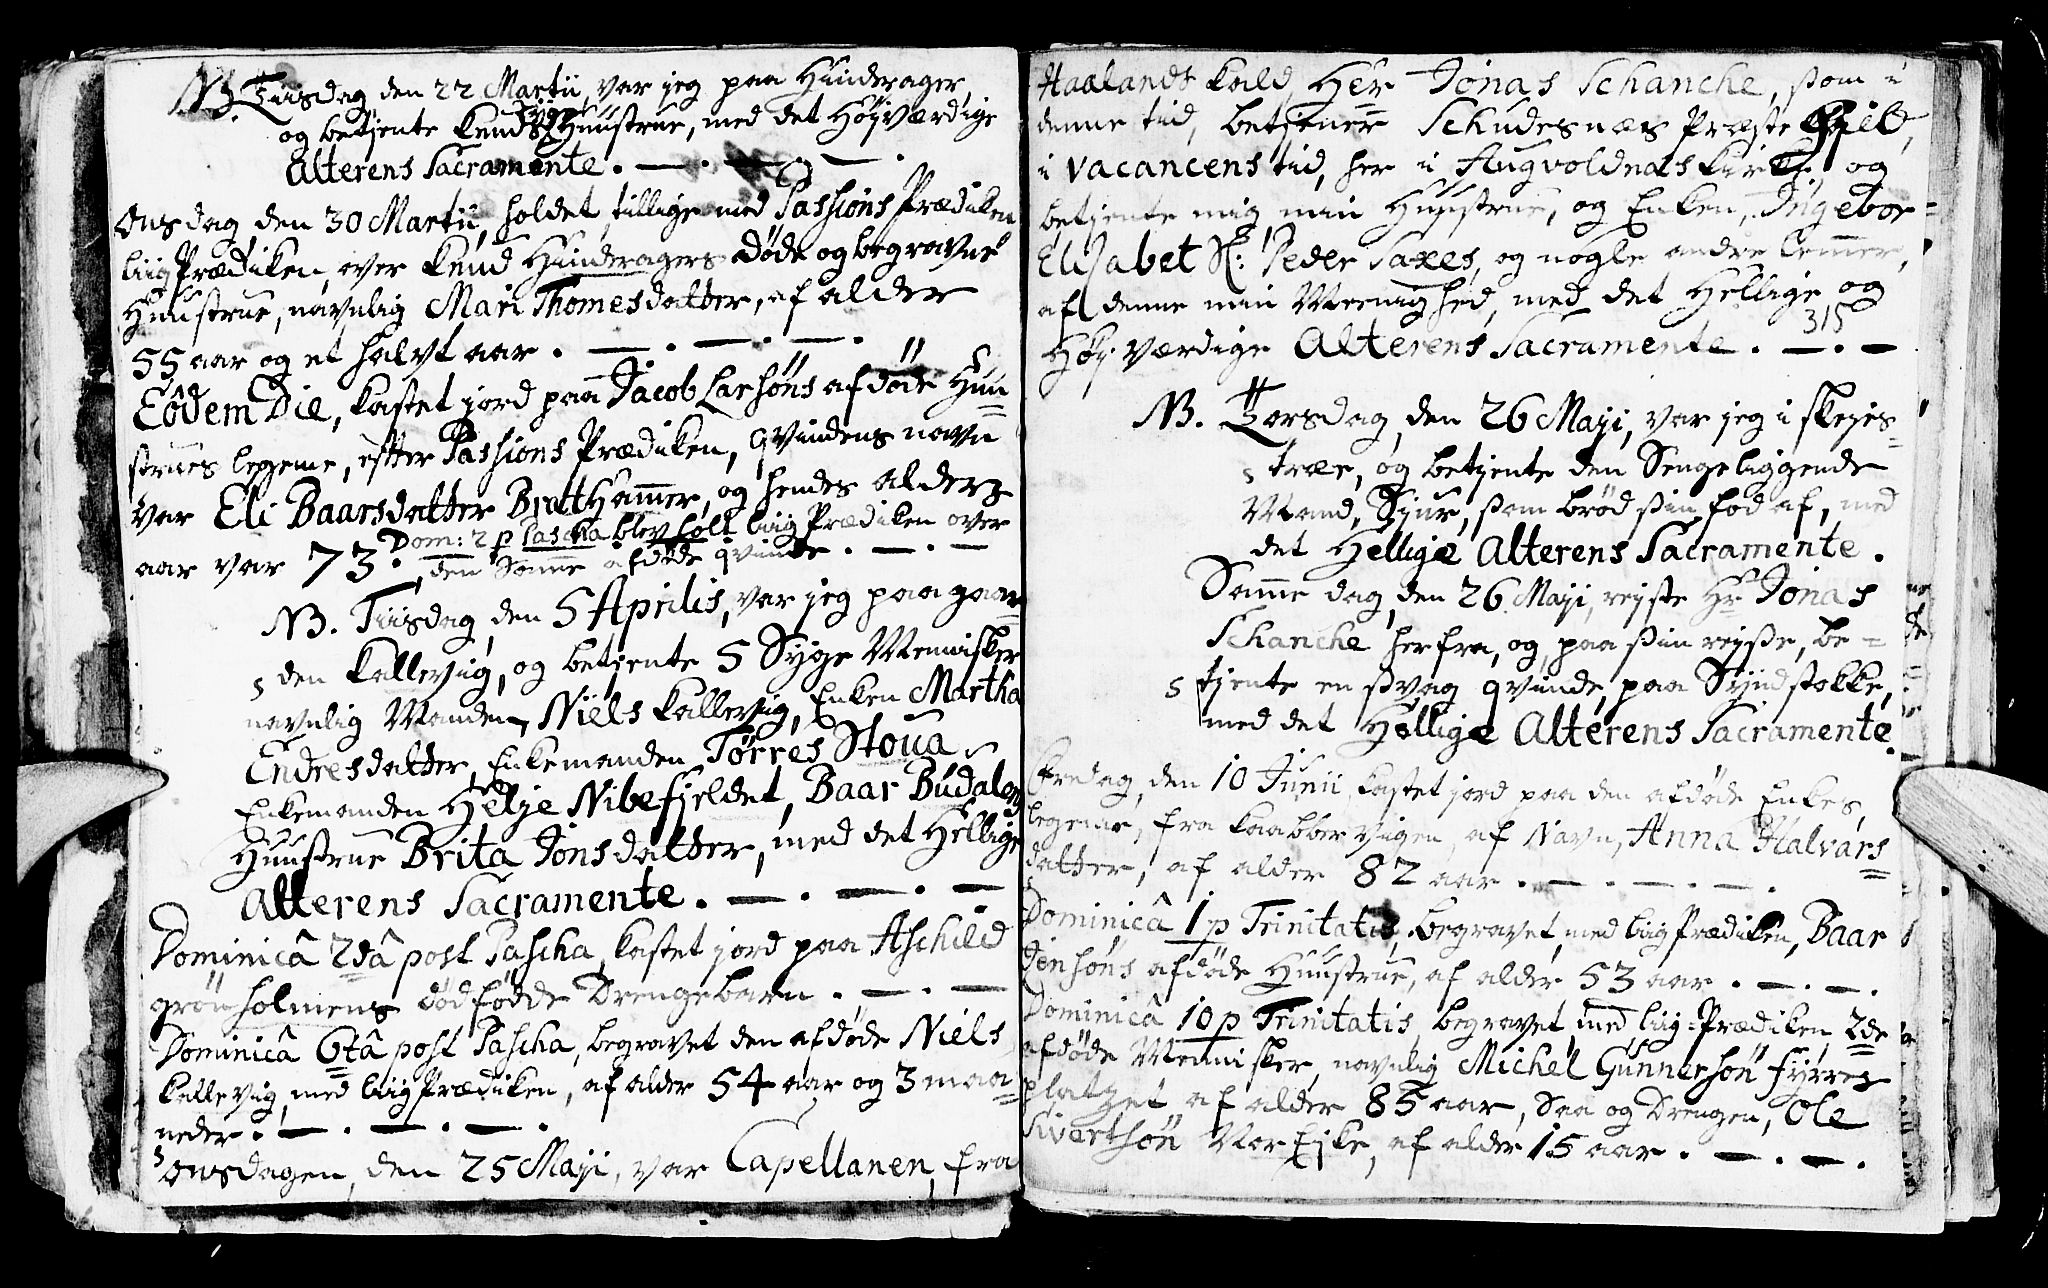 NB. Tiisdag, den 22 Martii, var jeg paa Hinderager,
og betjente Knuds Syge Huustrue, med det Høyværdige
Alterens Sacramente. —. —. —.
Onsdag den 30 Martii, holdet tillige med Passions Prædiken
liig Prædiken, over Knud Hinderagers døde og begravne
Huustrue, navnlig Mari Thomesdatter, af alder
55 aar og et halvt aar. —. —. —.
Eôdem Die, kastet jord paa Jacob Larsøns afdøde Huu=
strues legeme, efter Passions Prædiken, qvindens navn
var Eli Baarsdatter Bratthammer, og hendes alders
aar var 73. Dom: 2 p Pascha blev holt liig Prædiken over
den Samme afdøde qvinde. —. —
NB. Tiisdag, den 5 Aprilis, var jeg paa gaar=
5 den Kallevig, og betjente 5 Syge Mennisker
navnlig Manden, Niels Kallevig, Enken Martha
Endresdatter, Enkemanden Tørres Stoua,
Enkemanden Helje Nibefjeldet, Baar Budalens
Huustrue Brita Jonsdatter, med det Hellige
Alterens Sacramente. —. —. —
Dominicâ 2dâ post Pascha, kastet jord paa Aschild
grønholmens dødfødde Drengebarn. —. —
Dominicâ 6tâ post Pascha, begravet den afdøde Niels
Kallevig, med liig Prædiken, af alder 54 aar og 3 maa=
neder. —. —. —.
5 Onsdagen, den 25 Maji, var Capellanen, fra
Haalands kald, Her Jonas Schanche, som i
denne tid, betjener Schudesnæs Præste Gjeld,
i vacancens tid, her i Augvoldnæs Kirke, og
betjente mig, min Huustrue, og Enken, Ingebor=
Elisabet Sl: Peder Saxes, og nogle andre lemmer,
af denne min Meenighed, med det Hellige og
315
Høyværdige Alterens Sacramente. —. —
NB. Torsdag, den 26 Maji, var jeg i Skejs=
5 træe, og betjente den Sengeliggende
Mand, Sjur, som brød sin fod af, med
det Hellige Alterens Sacramente.
Samme dag, den 26 Maji, rejste Hr Jonas
Schanche herfra, og paa sin rejse, be=
5 tjente en svag qvinde, paa Syndstokke,
med det Hellige Alterens Sacramente.
Fredag, den 10 Junii, kastet jord paa den afdøde Enkes
legeme, fra Kaabbervigen, af Navn, Anna Halvars=
datter, af alder 82 aar. —. —. —.
Dominicâ 1 p Trinitatis, begravet, med liig Prædiken, Baar
Jensøns afdøde Huustrue, af alder 53 aar. —. —.
Dominicâ 10 p Trinitatis, begravet, med liig=Prædiken, 2de
afdøde Mennisker, navnlig Michel Gunnersøn fyrres
platzet, af alder 85 aar, saa og Drengen, Ole
Sivertsøn Nor Ejke, af alder 15 aar. —. —.